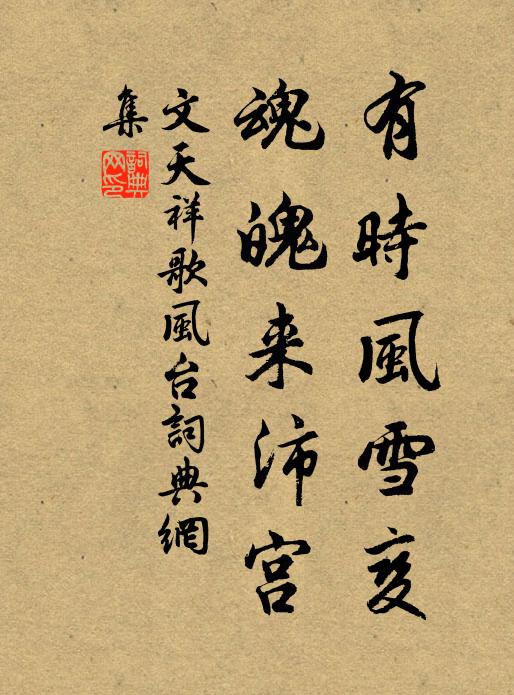 有時風雪夜
魂魄来沛宫
文天祥歌風台詞典網
集
詞典网印